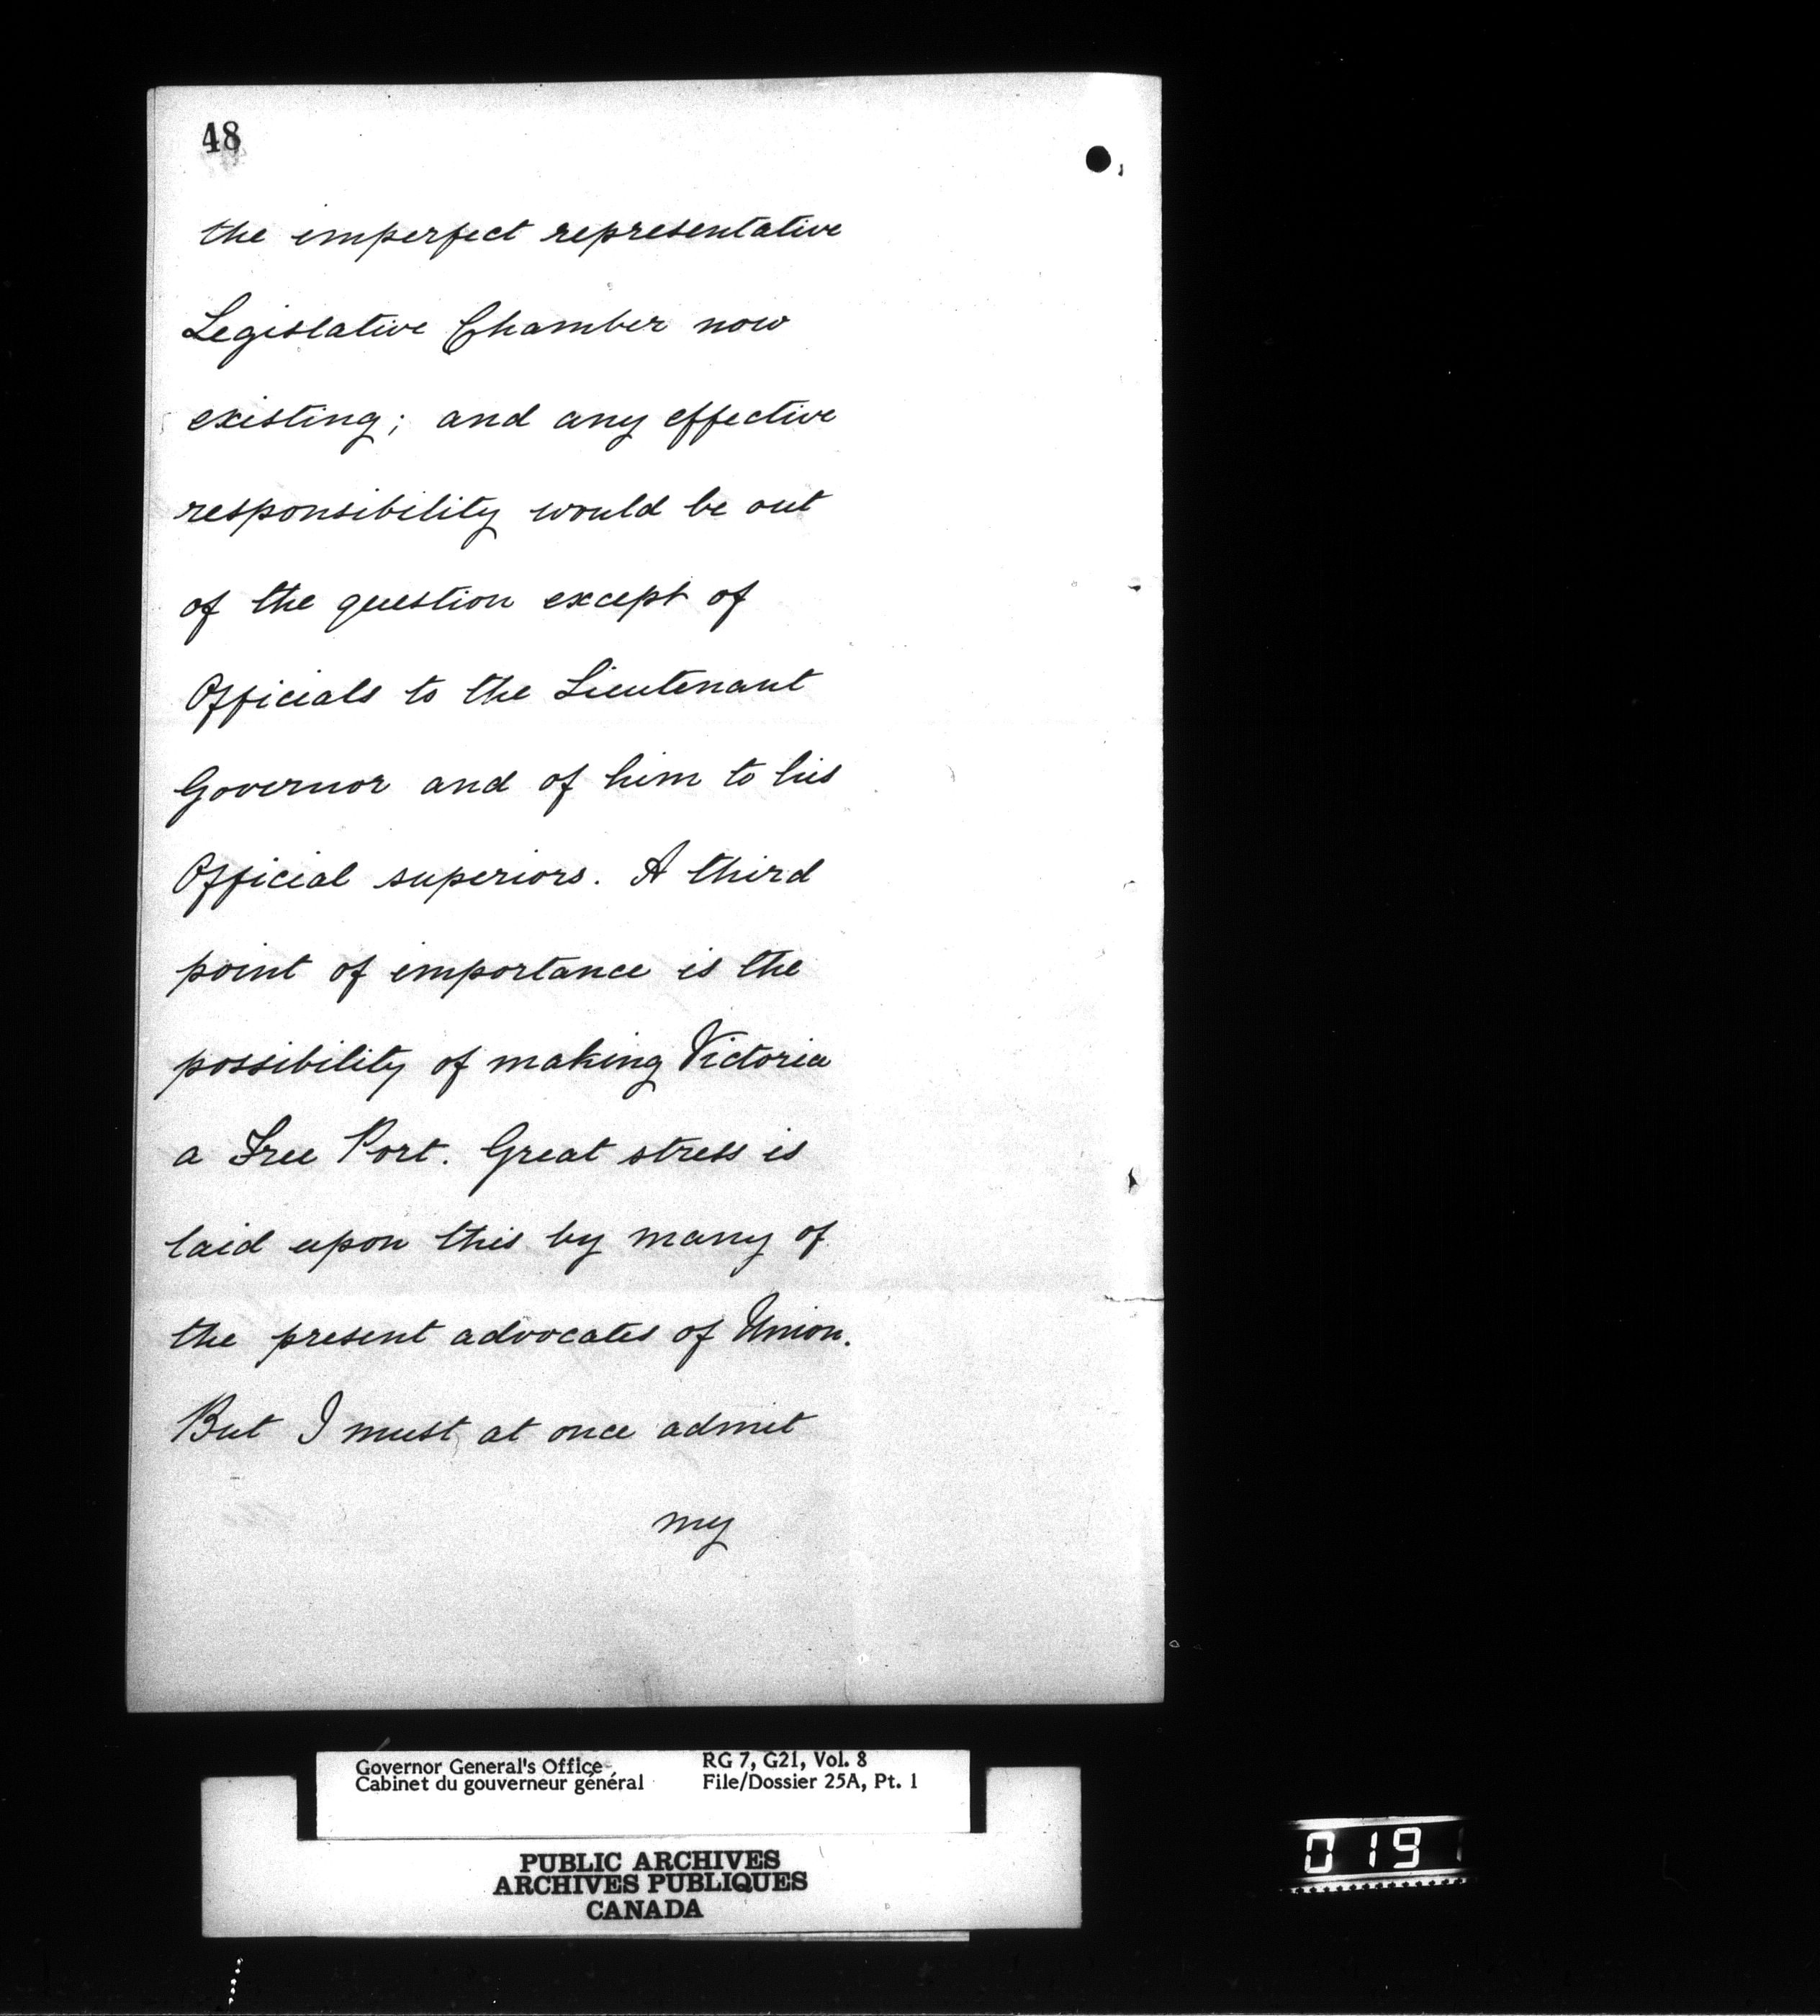 48
the imperfect representative
Legislative Chamber now
existing; and any effective
responsibility would be out
of the question except of
Officials to the Lieutenant
Governor and of him to his
Official superiors. A third
point of importance is the
possibility of making Victoria
a Free Port. Great stress is
laid upon this by many of
the present advocates of Union.
But I must at once admit
my
Governor General's Office
Cabinet du gouverneur général
RG 7, G21, Vol. 8
File/Dossier 25A, Pt. 1
PUBLIC ARCHIVES
ARCHIVES PUBLIQUES
CANADA
0191